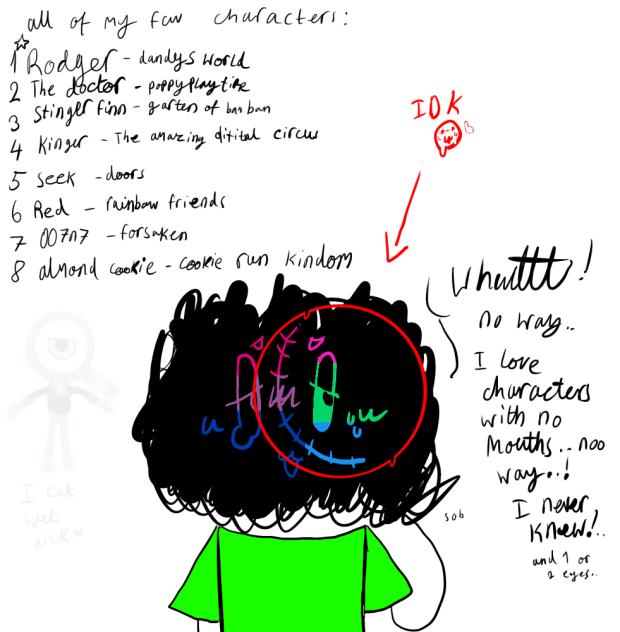 all of my fav characters:
1 Rodger - dandys world
2 The doctor - poppy playtime
3 Stinger finn - garten of ban ban
4 Kinger - The amazing ditital circus
5 seek - doors
6 Red - rainbow friends
7 007n7 - forsaken
8 almond cookie - cookie run kindom
IDK
Whatttt!
no way..
I love
characters
with no
mouths.. noo
way..!
I never
knew!..
and 1 or
2 eyes..
sob
I eat
wet
dick